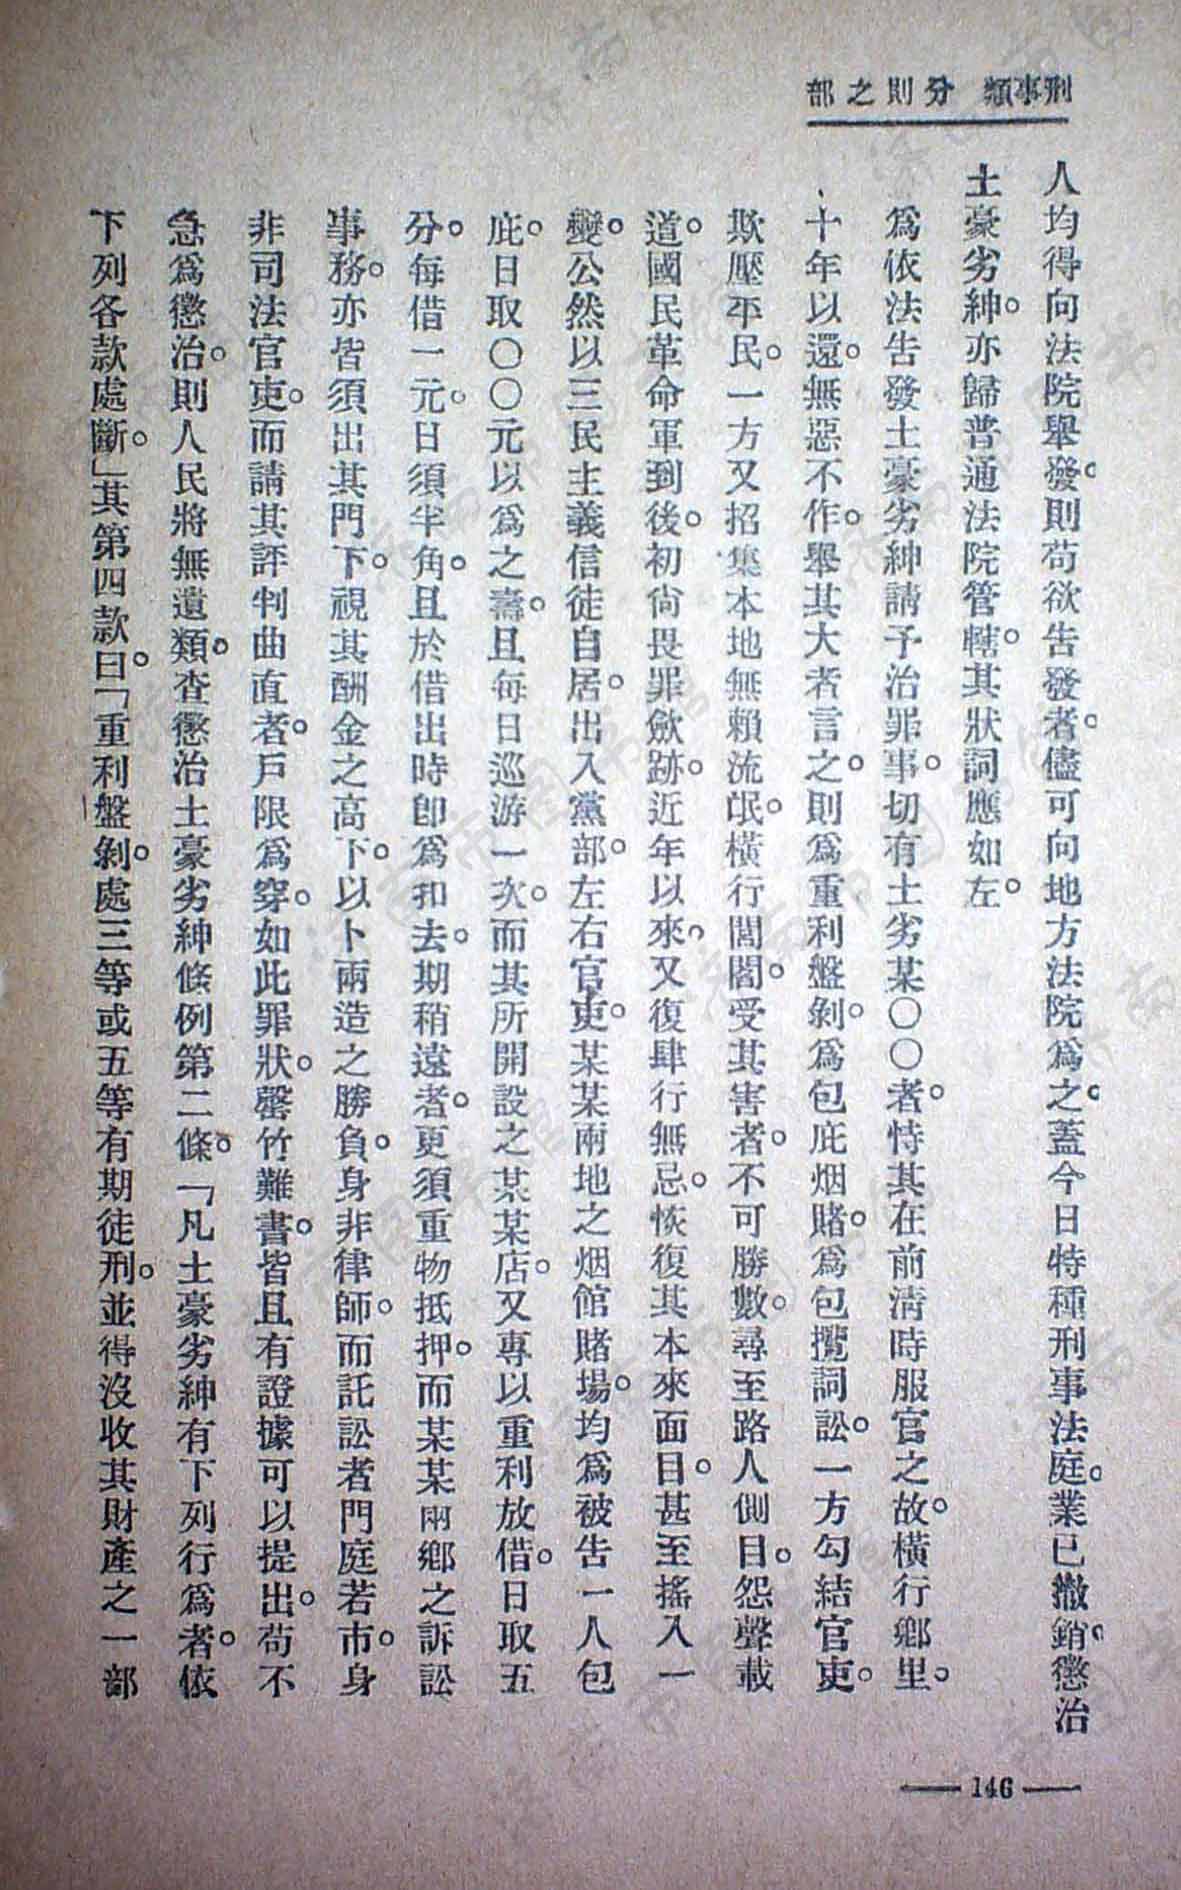 刑事類　分則之部
人均得向法院舉發。則苟欲告發者。儘可向地方法院爲之。蓋今日特種刑事法庭。業已撤銷。懲治
土豪劣紳。亦歸普通法院管轄。其狀詞應如左。
爲依法告發土豪劣紳請予治罪事。切有土劣某〇〇者。恃其在前淸時服官之故。橫行鄕里。
十年以還。無惡不作。舉其大者言之。則爲重利盤剝。爲包庇烟賭。爲包攬詞訟。一方勾結官吏。
欺壓平民。一方又招集本地無賴流氓。橫行閭閻。受其害者。不可勝數。尋至路人側目。怨聲載
道。國民革命軍到後。初尙畏罪歛跡。近年以來。又復肆行無忌。恢復其本來面目。甚至搖入一
變。公然以三民主義信徒自居。出入黨部。左右官吏。某某兩地之烟館賭場。均爲被告一人包
庇。日取〇〇元以爲之壽。且每日巡游一次。而其所開設之某某店。又專以重利放借。日取五
分。每借一元。日須半角。且於借出時卽爲扣去。期稍遠者。更須重物抵押。而某某兩鄕之訴訟
事務。亦皆須出其門下。視其酬金之高下。以卜兩造之勝負。身非律師。而託訟者門庭若市。身
非司法官吏。而請其評判曲直者。戶限爲穿。如此罪狀。罄竹難書。皆且有證據可以提出。苟不
急爲懲治。則人民將無遺類。查懲治土豪劣紳條例第二條。「凡土豪劣紳有下列行爲者。依
下列各款處斷。」其第四款曰。「重利盤剝。處三等或五等有期徒刑。並得沒收其財產之一部
146